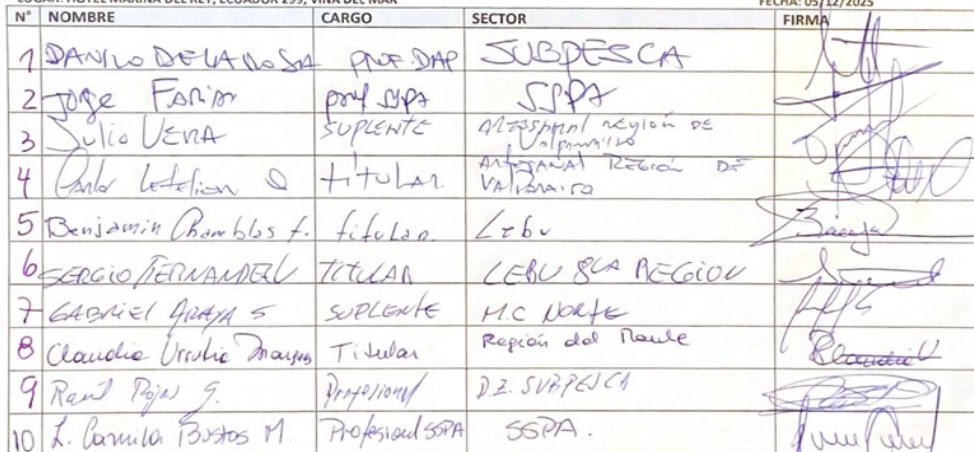 LUGAR: HOTEL MARINA DEL REY, ECUADOR 299, VIÑA DEL MAR FECHA: 05/12/2025
N° NOMBRE CARGO SECTOR FIRMA
1 DANILO DE LA ROSA PROF. DAP SUBPESCA
2 Jorge Farias prof SSPA SSPA
3 Julio VERA SUPLENTE Artesanal región de Valparaíso
4 Carlos Letelier titular. Artesanal Región DE VALPARAISO
5 Benjamin Chamblas f. titular. Lebu
6 SERGIO FERNANDEZ TITULAR LEBU 8VA REGION
7 GABRIEL ARAYA S SUPLENTE M.C NORTE
8 Claudia Urrutia Titular Región del Maule
9 Raúl Rojas G. Profesional D.Z. SUBPESCA
10 L. Camila Bustos M. Profesional SSPA SSPA.